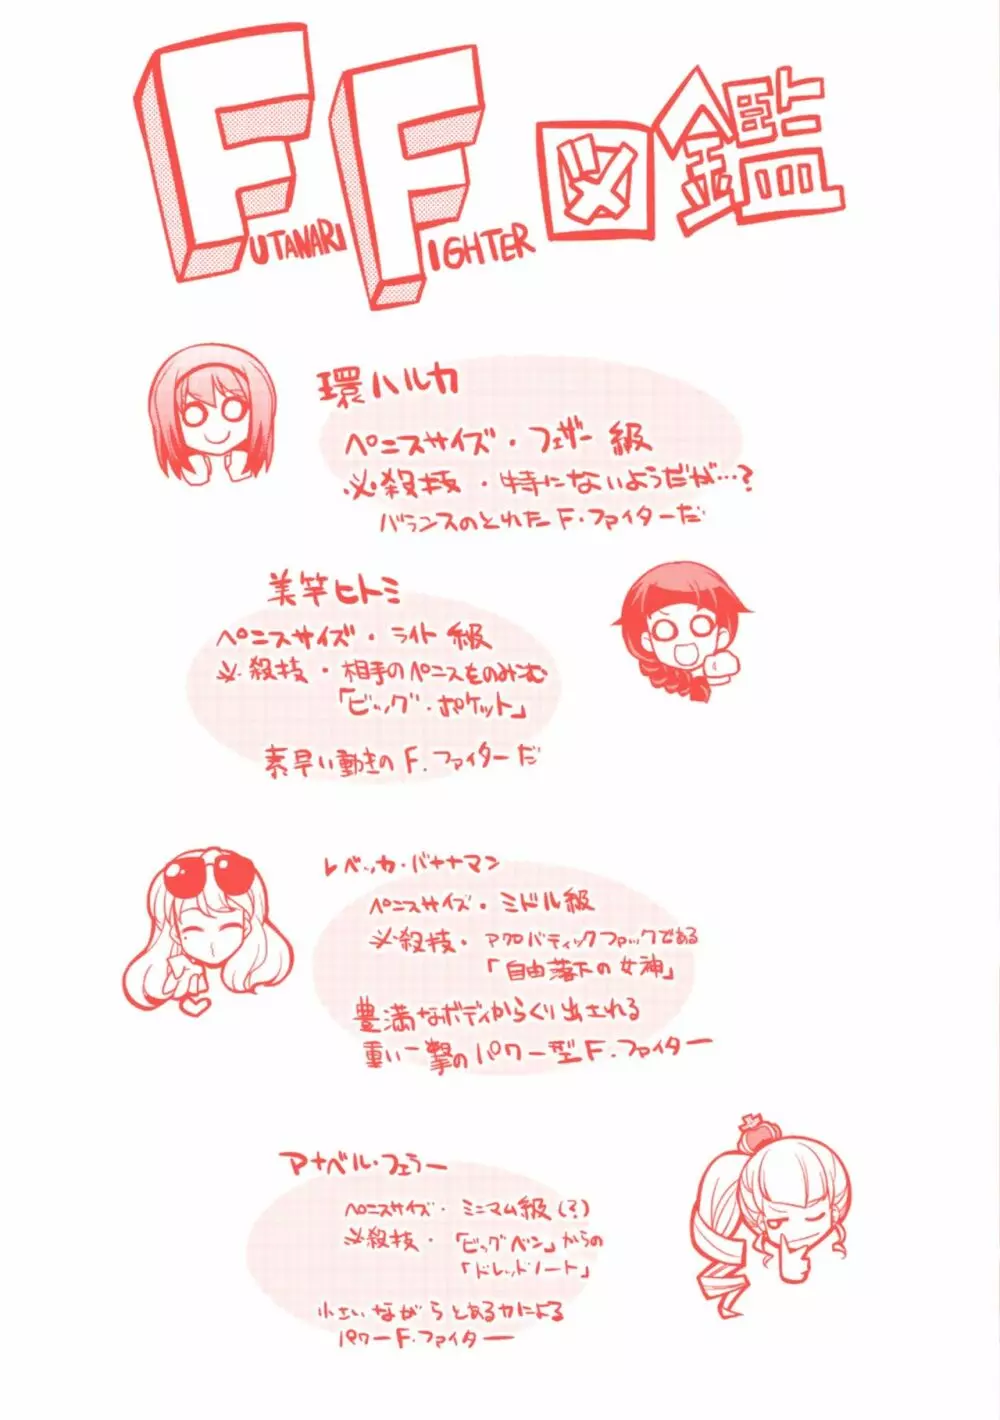 FUTANARI FIGHTER 図鑑
環ハルカ
ペニスサイズ・フェザー級
必殺技・特にないようだが…?
バランスのとれたF・ファイターだ
美竿ヒトミ
ペニスサイズ・ライト級
必殺技・相手のペニスをのみこむ
「ビッグ・ポケット」
素早い動きのF.ファイターだ
レベッカ・バナナマン
ペニスサイズ・ミドル級
必殺技・アクロバティックファックである
「自由落下の女神」
豊満なボディからくり出される
重い一撃のパワー型F.ファイター
アナベル・フェラー
ペニスサイズ・ミニマム級(?)
必殺技・「ビッグベン」からの
「ドレッドノート」
小さいながらとある力による
パワーF.ファイター